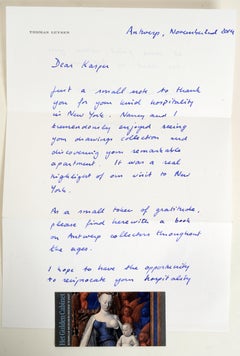 THOMAS LEYSEN
Antwerp, November 2nd 2014
Dear Kasper
Just a small note to thank
you for your kind hospitality
in New York. Nancy and I
tremendously enjoyed seeing
your drawings collection and
discovering your remarkable
apartment. It was a real
highlight of our visit to New
York.
As a small token of gratitude,
please find herewith a book
on Antwerp collectors throughout
the ages.
I hope to have the opportunity
to reciprocate your hospitality
The Golden Cabinet